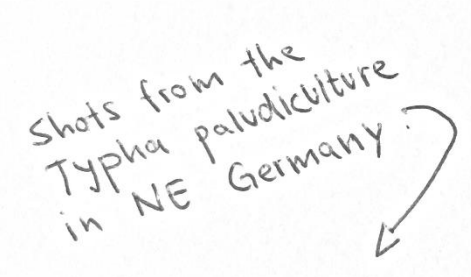 Shots from the
Typha paludiculture
in NE Germany.